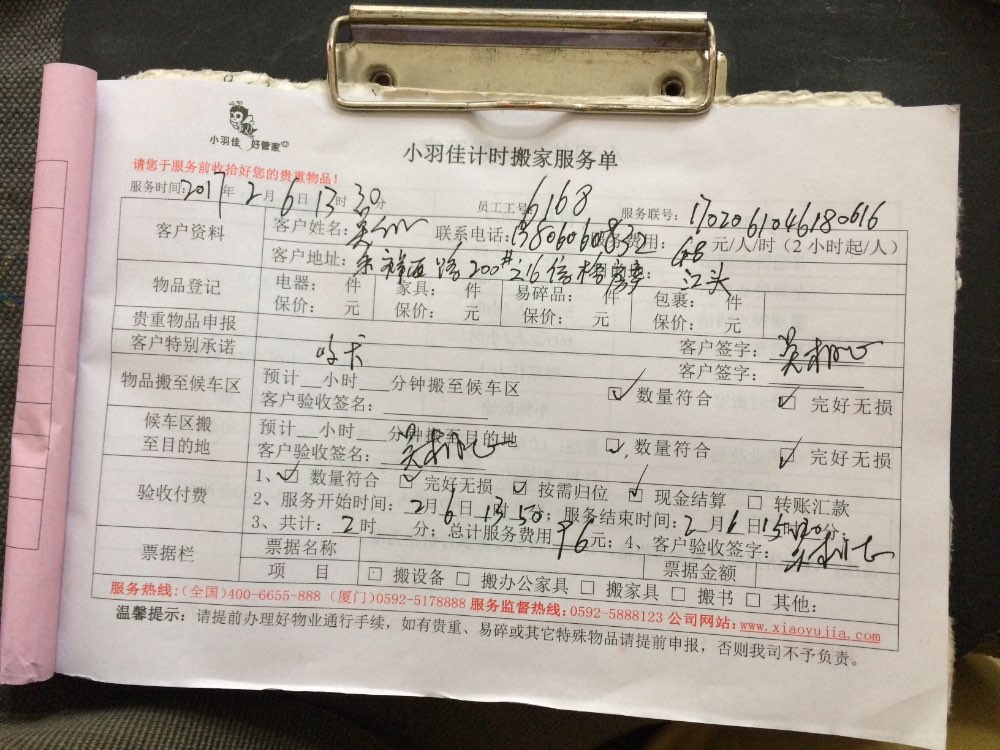 小羽佳 好管家
小羽佳计时搬家服务单
请您于服务前收拾好您的贵重物品！
服务时间：2017年2月6日13时30分 员工工号：6168 服务联号：1702061046180616
客户资料 客户姓名： 联系电话：13806060832 费用：68元/人/时（2小时起/人）
客户地址： 200# 江头
物品登记 电器： 件 家具： 件 易碎品： 件 包裹： 件
保价： 元 保价： 元 保价： 元 保价： 元
贵重物品申报 客户签字：
客户特别承诺 客户签字：
物品搬至候车区 预计__小时___分钟搬至候车区 ☑数量符合 ☑完好无损
客户验收签名：
候车区搬至目的地 预计__小时___分钟搬至目的地 ☑数量符合 ☑完好无损
客户验收签名：
验收付费 1、☑数量符合 ☑完好无损 ☑按需归位 ☑现金结算 □转账汇款
2、服务开始时间：2月6日13时50分；服务结束时间：2月6日15时30分；
3、共计：2时___分；总计服务费用 元；4、客户验收签字：
票据栏 票据名称 票据金额
项 目 □搬设备 □搬办公家具 □搬家具 □搬书 □其他：
服务热线：(全国)400-6655-888 (厦门)0592-5178888 服务监督热线：0592-5888123 公司网站：www.xiaoyujia.com
温馨提示：请提前办理好物业通行手续，如有贵重、易碎或其它特殊物品请提前申报，否则我司不予负责。